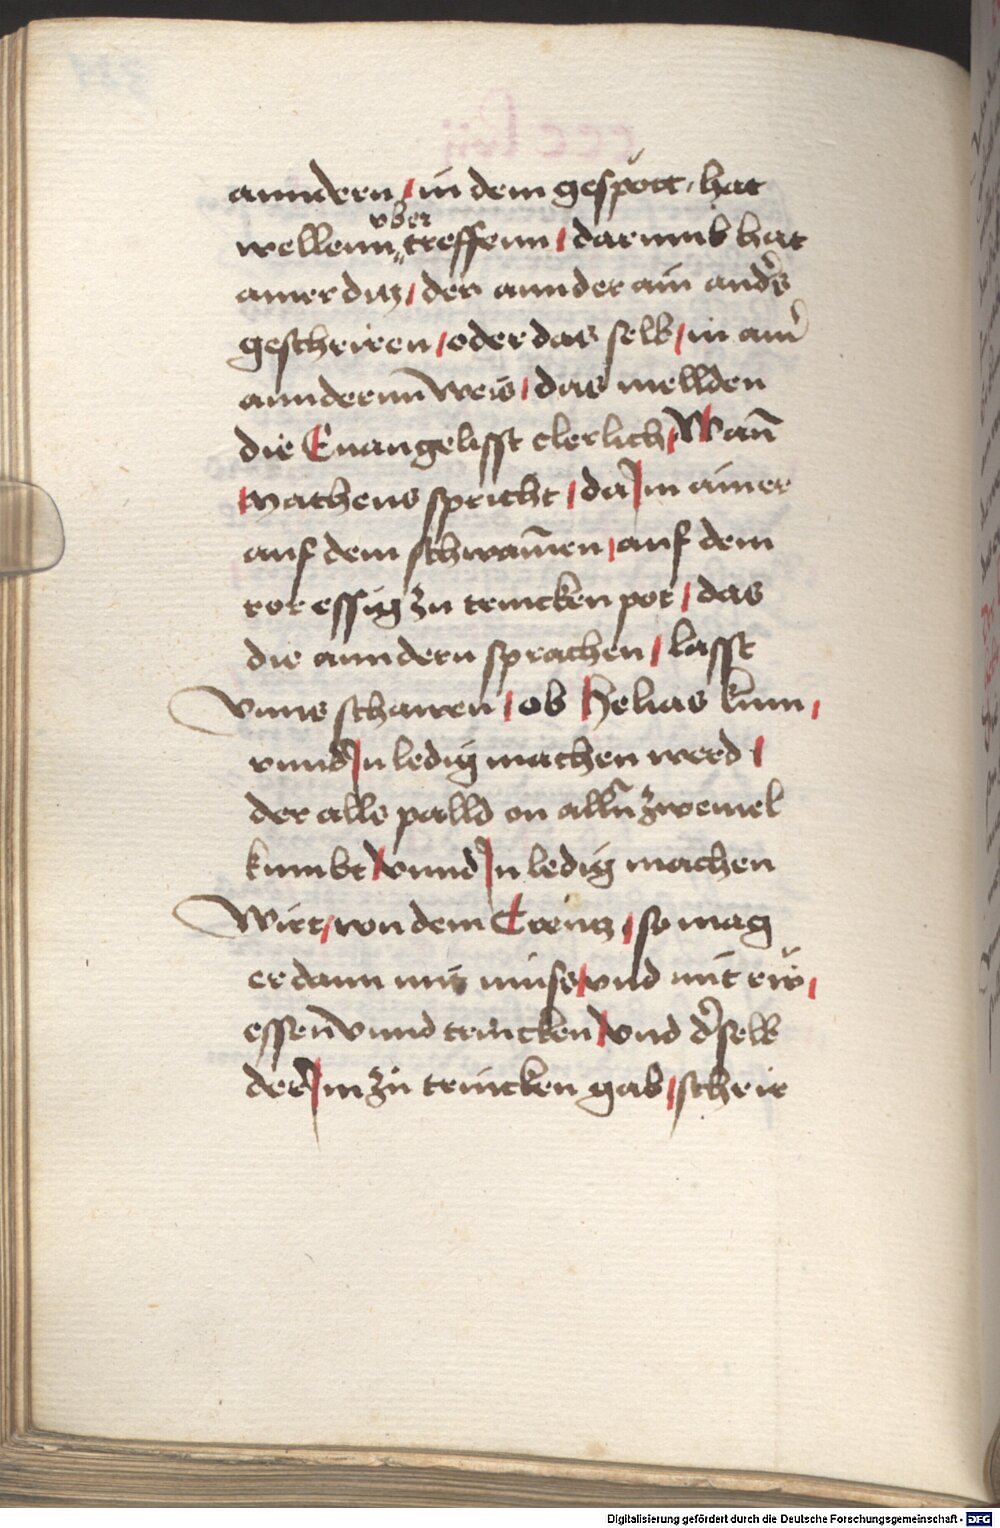 anndern / in dem gespött / hat
vber
wellenn treffenn / darumb hat
ainer ditz / der annder ain anders
geschriren / oder das selb / in ain
anndernn weis / das mellden
die Euangelisst clerlich / Wann
Matheus spricht / da Im ainer
auf dem schwamen / auf dem
ror essig zu trincken pot / das
die anndern sprachen / lasst
vnns schawen / ob Helias kum /
vnnd In ledig machen werd /
der alls palld on alln zweiuel
kumbt / vnnd In ledig machen
Wirt / von dem Creutz / so mag
er dann mit vnd mit rw /
essen vnnd trincken / vnd derselb
der Im zu trincken gab / schrir
Digitalisierung gefördert durch die Deutsche Forschungsgemeinschaft - DFG